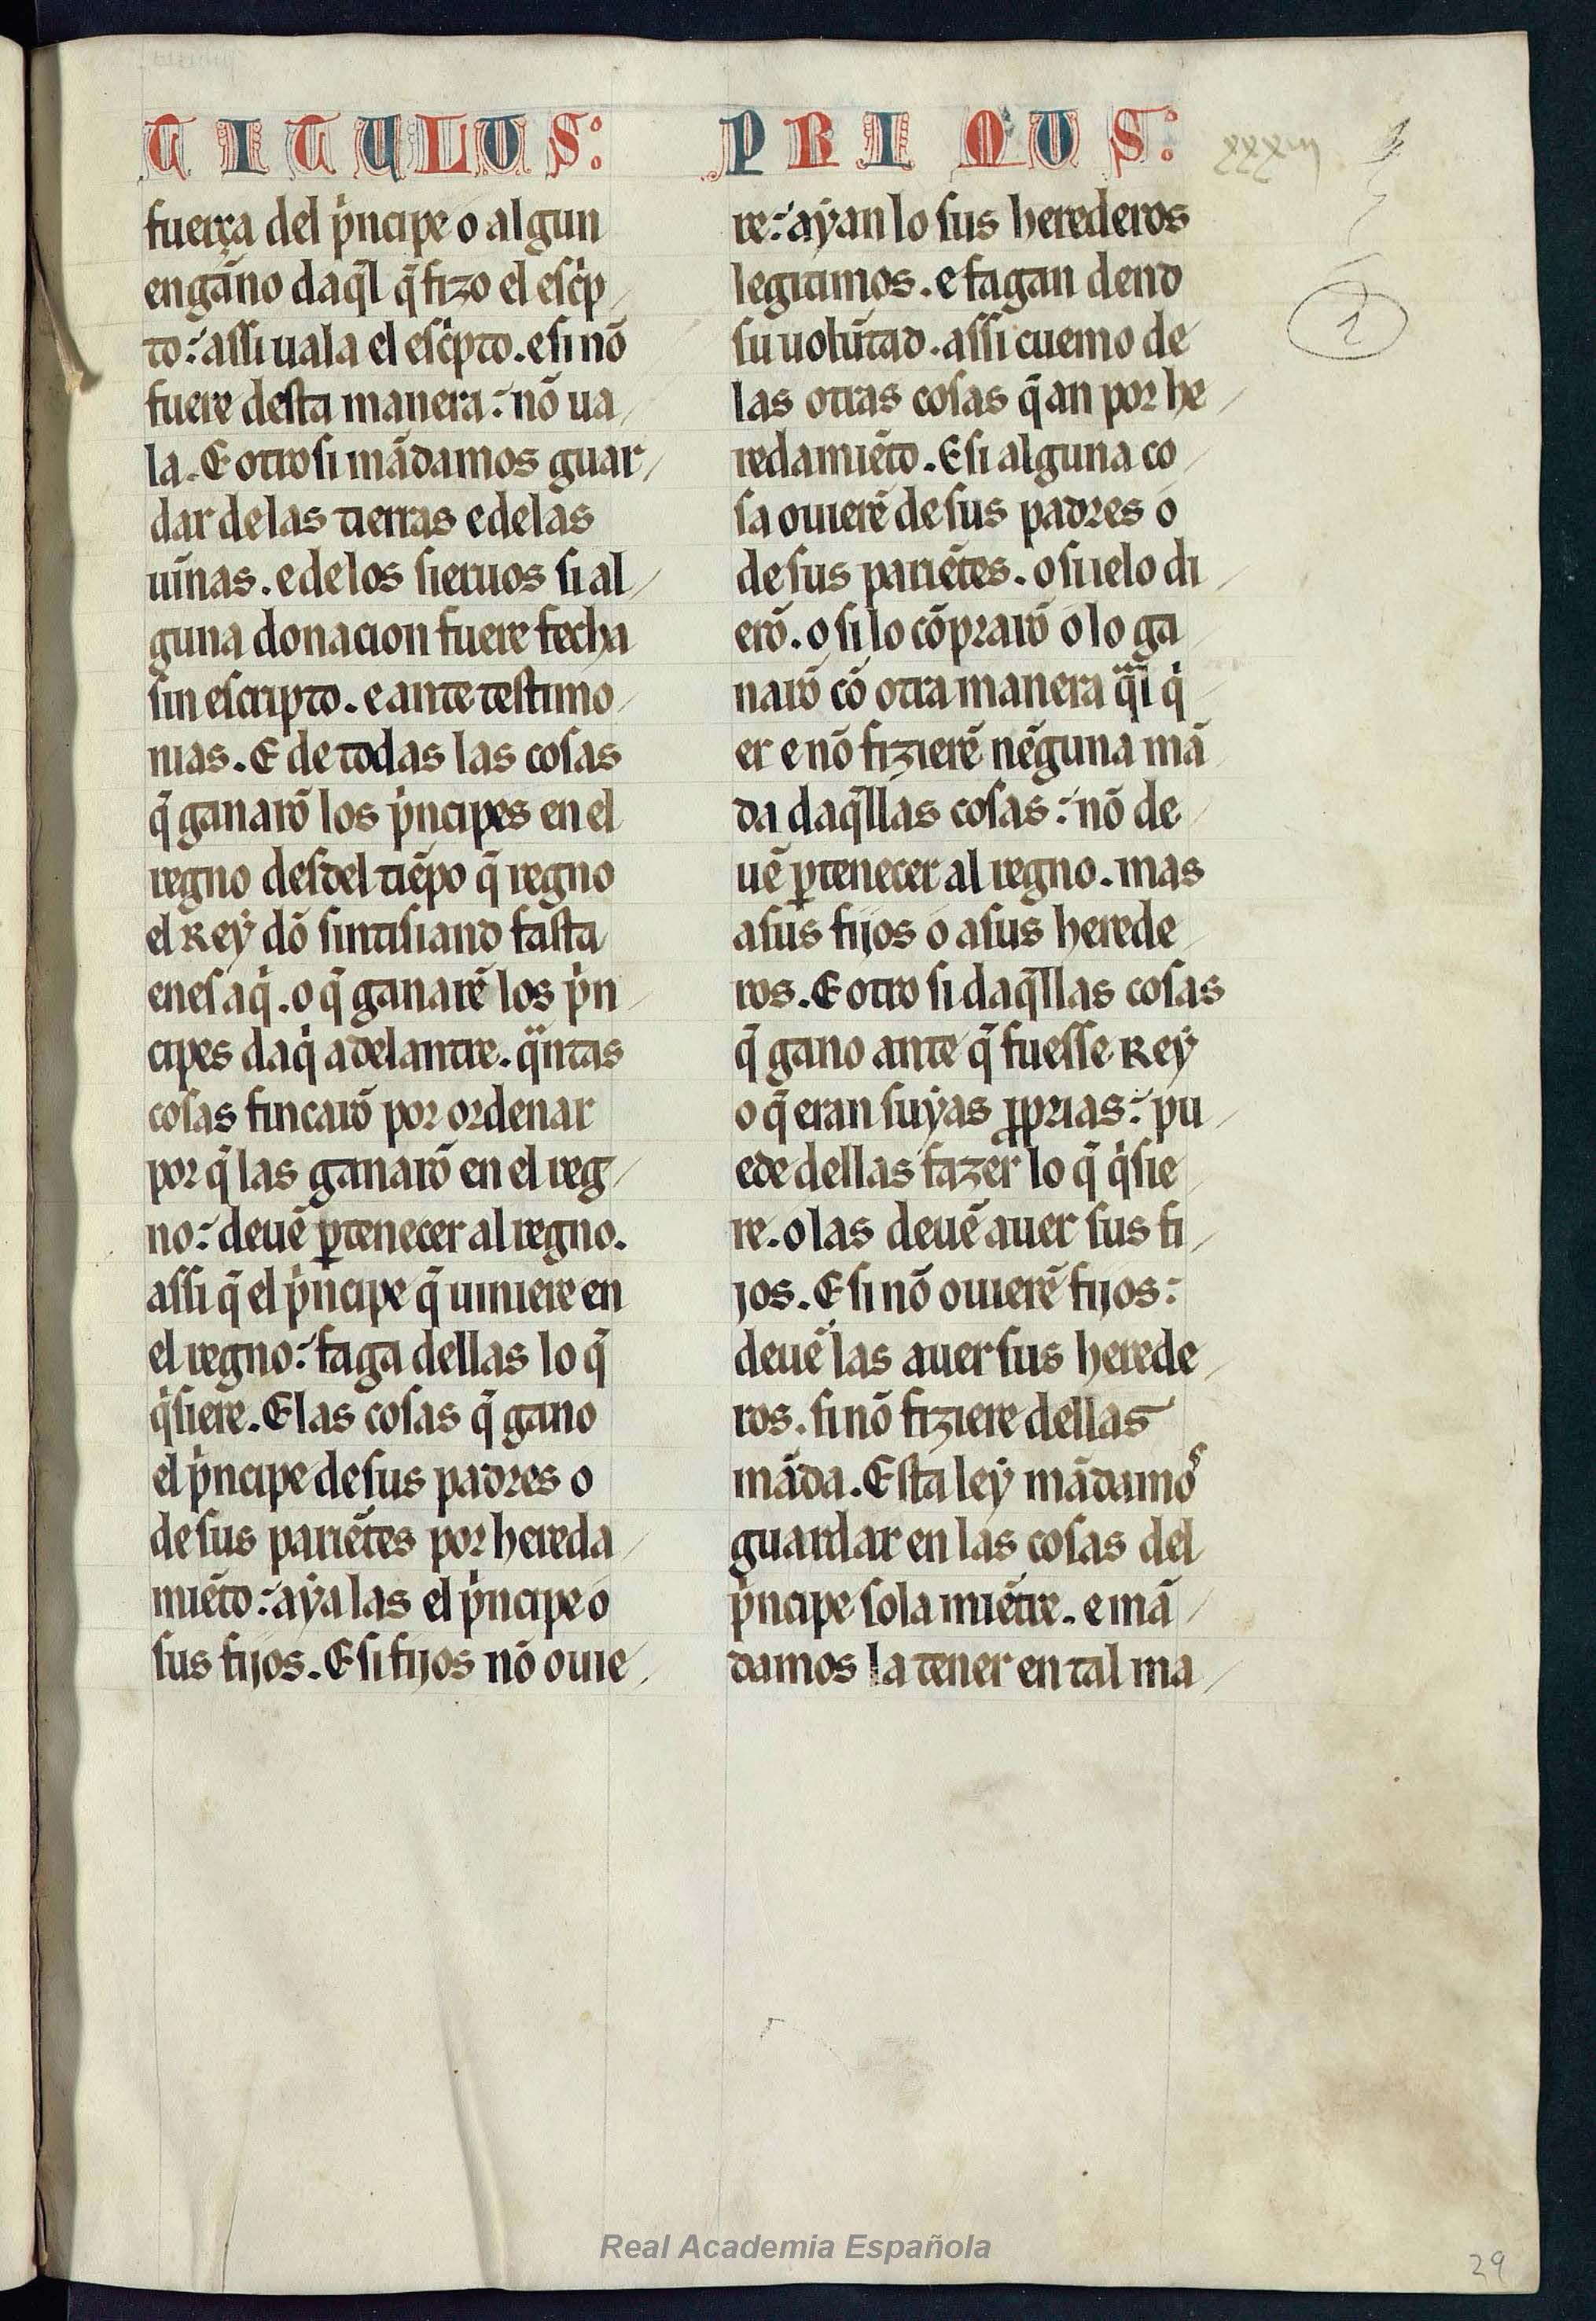 TITULUS:
PRIMUS:
xxxiii
fuerça del p̍ncipe o algun
engãno daq̃l q̃ fizo el esc̍p
to: assi uala el esc̍pto. e si nõ
fuere desta manera: nõ ua
la. E otro si mãdamos guar
dar de las tierras e de las
uĩnas. e de los sieruos si al
guna donacion fuere fecha
sin escripto. e ante testimo
nias. E de todas las cosas
q̃ ganarõ los p̍ncipes en el
regno desdel tiẽpo q̃ regno
el Rey dõ sintisiano fasta
enes aq̍. o q̃ ganarẽ los p̍n
cipes daq̍ adelantre. q̃ntas
cosas fincarõ por ordenar
por q̃ las ganarõ en el reg
no: deuẽ ꝑtenecer al regno.
assi q̃ el p̍ncipe q̃ uiniere en
el regno: faga dellas lo q̃
q̍siere. E las cosas q̃ gano
el p̍ncipe de sus padres o
de sus pariẽtes por hereda
miẽto: aya las el p̍ncipe o
sus fijos. E si fijos nõ ouie
re: ayan lo sus herederos
legitimos. e fagan dend
su uolũtad. assi cuemo de
las otras cosas q̃ an por he
redamiẽto. E si alguna co
sa ouierẽ de sus padres o
de sus pariẽtes. o si ielo di
erõ. o si lo cõprarõ o lo ga
narõ cõ otra manera q̃l q̍
er e nõ fizierẽ nẽguna mã
da daq̃llas cosas: nõ de
uẽ ꝑtenecer al regno. mas
a sus fijos o a sus herede
ros. E otro si daq̃llas cosas
q̃ gano ante q̃ fuesse Rey
o q̃ eran suyas ꝓprias: pu
ede dellas fazer lo q̃ q̍sie
re. o las deuẽ auer sus fi
jos. E si nõ ouierẽ fijos:
deuẽ las auer sus herede
ros. si nõ fiziere dellas
mãda. Esta ley mãdamoˢ
guardar en las cosas del
p̍ncipe sola miẽtre. e mã
damos la tener en tal ma
1
Real Academia Española
29